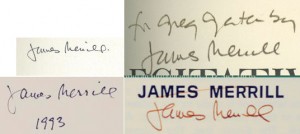 James Merrill.
for Greg Gatenby
James Merrill
James Merrill
1993
JAMES MERRILL
James Merrill